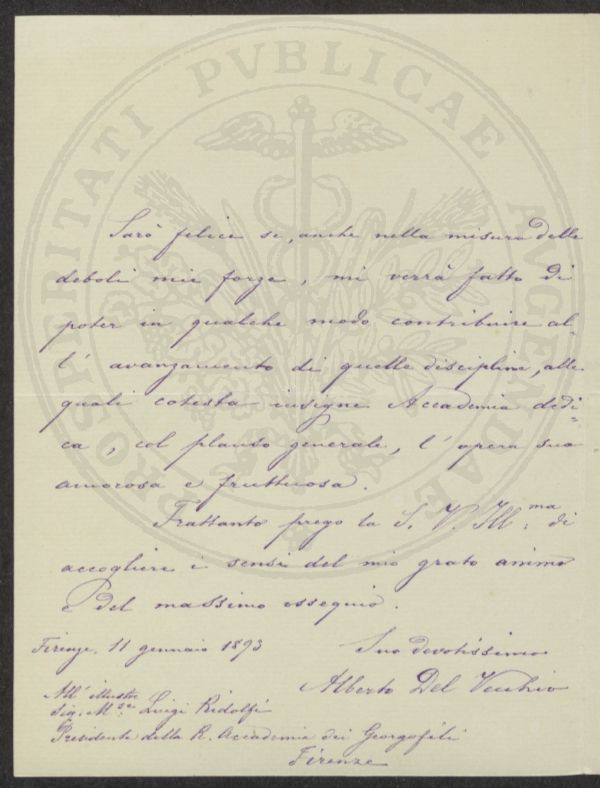 PROSPERITATI PVBLICAE AVGENDAE
Sarò felice se, anche nella misura delle
deboli mie forze, mi verrà fatto di
poter in qualche modo contribuire al-
l' avanzamento di quelle discipline, alle
quali cotesta insigne Accademia dedi=
ca, col plauso generale, l' opera sua
amorosa e fruttuosa.
Frattanto prego la S. V. Ill:ma di
accogliere i sensi del mio grato animo
e del massimo ossequio.
Firenze, 11 gennaio 1893
Suo devotissimo
Alberto Del Vecchio
All' illustre
Sig. M.se Luigi Ridolfi
Presidente della R. Accademia dei Georgofili
Firenze